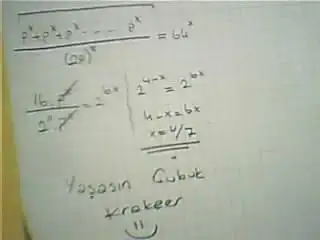 p^x+p^x+p^x ----- p^x / (2p)^x = 64^x
16 . p^x / 2^x . p^x = 2^6x
2^4-x = 2^6x
4-x=6x
x=4/7
Yaşasın Çubuk
Kraker